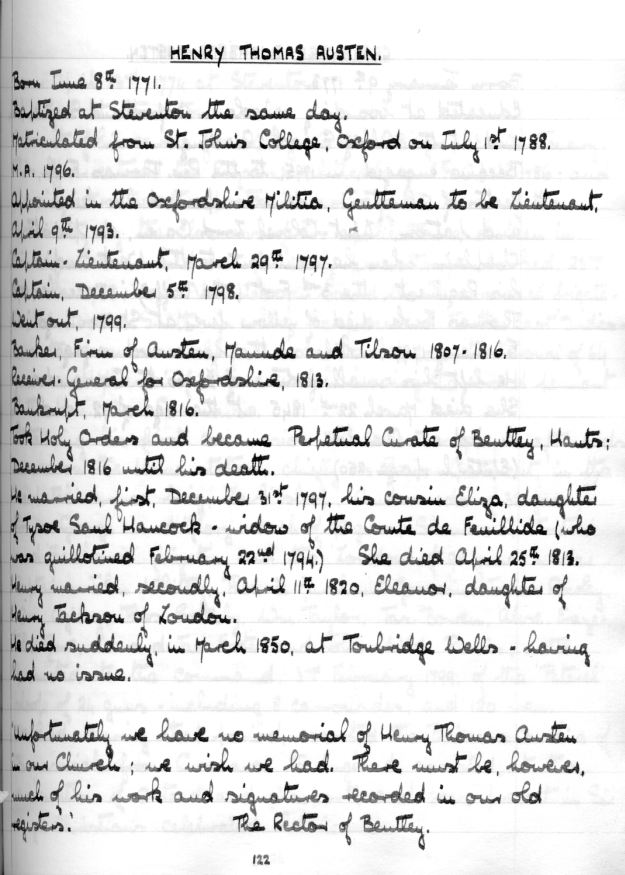 HENRY THOMAS AUSTEN.
Born June 8th 1771.
Baptized at Steventon the same day.
Matriculated from St. John's College, Oxford on July 1st 1788.
M.A. 1796.
Appointed in the Oxfordshire Militia, Gentleman to be Lieutenant,
April 9th 1793.
Captain-Lieutenant, March 29th 1797.
Captain, December 5th 1798.
Went out, 1799.
Banker, Firm of Austen, Maunde and Tilson 1807-1816.
Receiver-General for Oxfordshire, 1813.
Bankrupt, March 1816.
Took Holy Orders and became Perpetual Curate of Bentley, Hants;
December 1816 until his death.
He married, first, December 31st 1797, his cousin Eliza, daughter
of Tysoe Saul Hancock - widow of the Comte de Feuillide (who
was guillotined February 22nd 1794.) She died April 25th 1813.
Henry married, secondly, April 11th 1820, Eleanor, daughter of
Henry Jackson of London.
He died suddenly, in March 1850, at Tonbridge Wells - having
had no issue.
'Unfortunately we have no memorial of Henry Thomas Austen
in our Church; we wish we had. There must be, however,
much of his work and signatures recorded in our old
registers.' The Rector of Bentley.
122